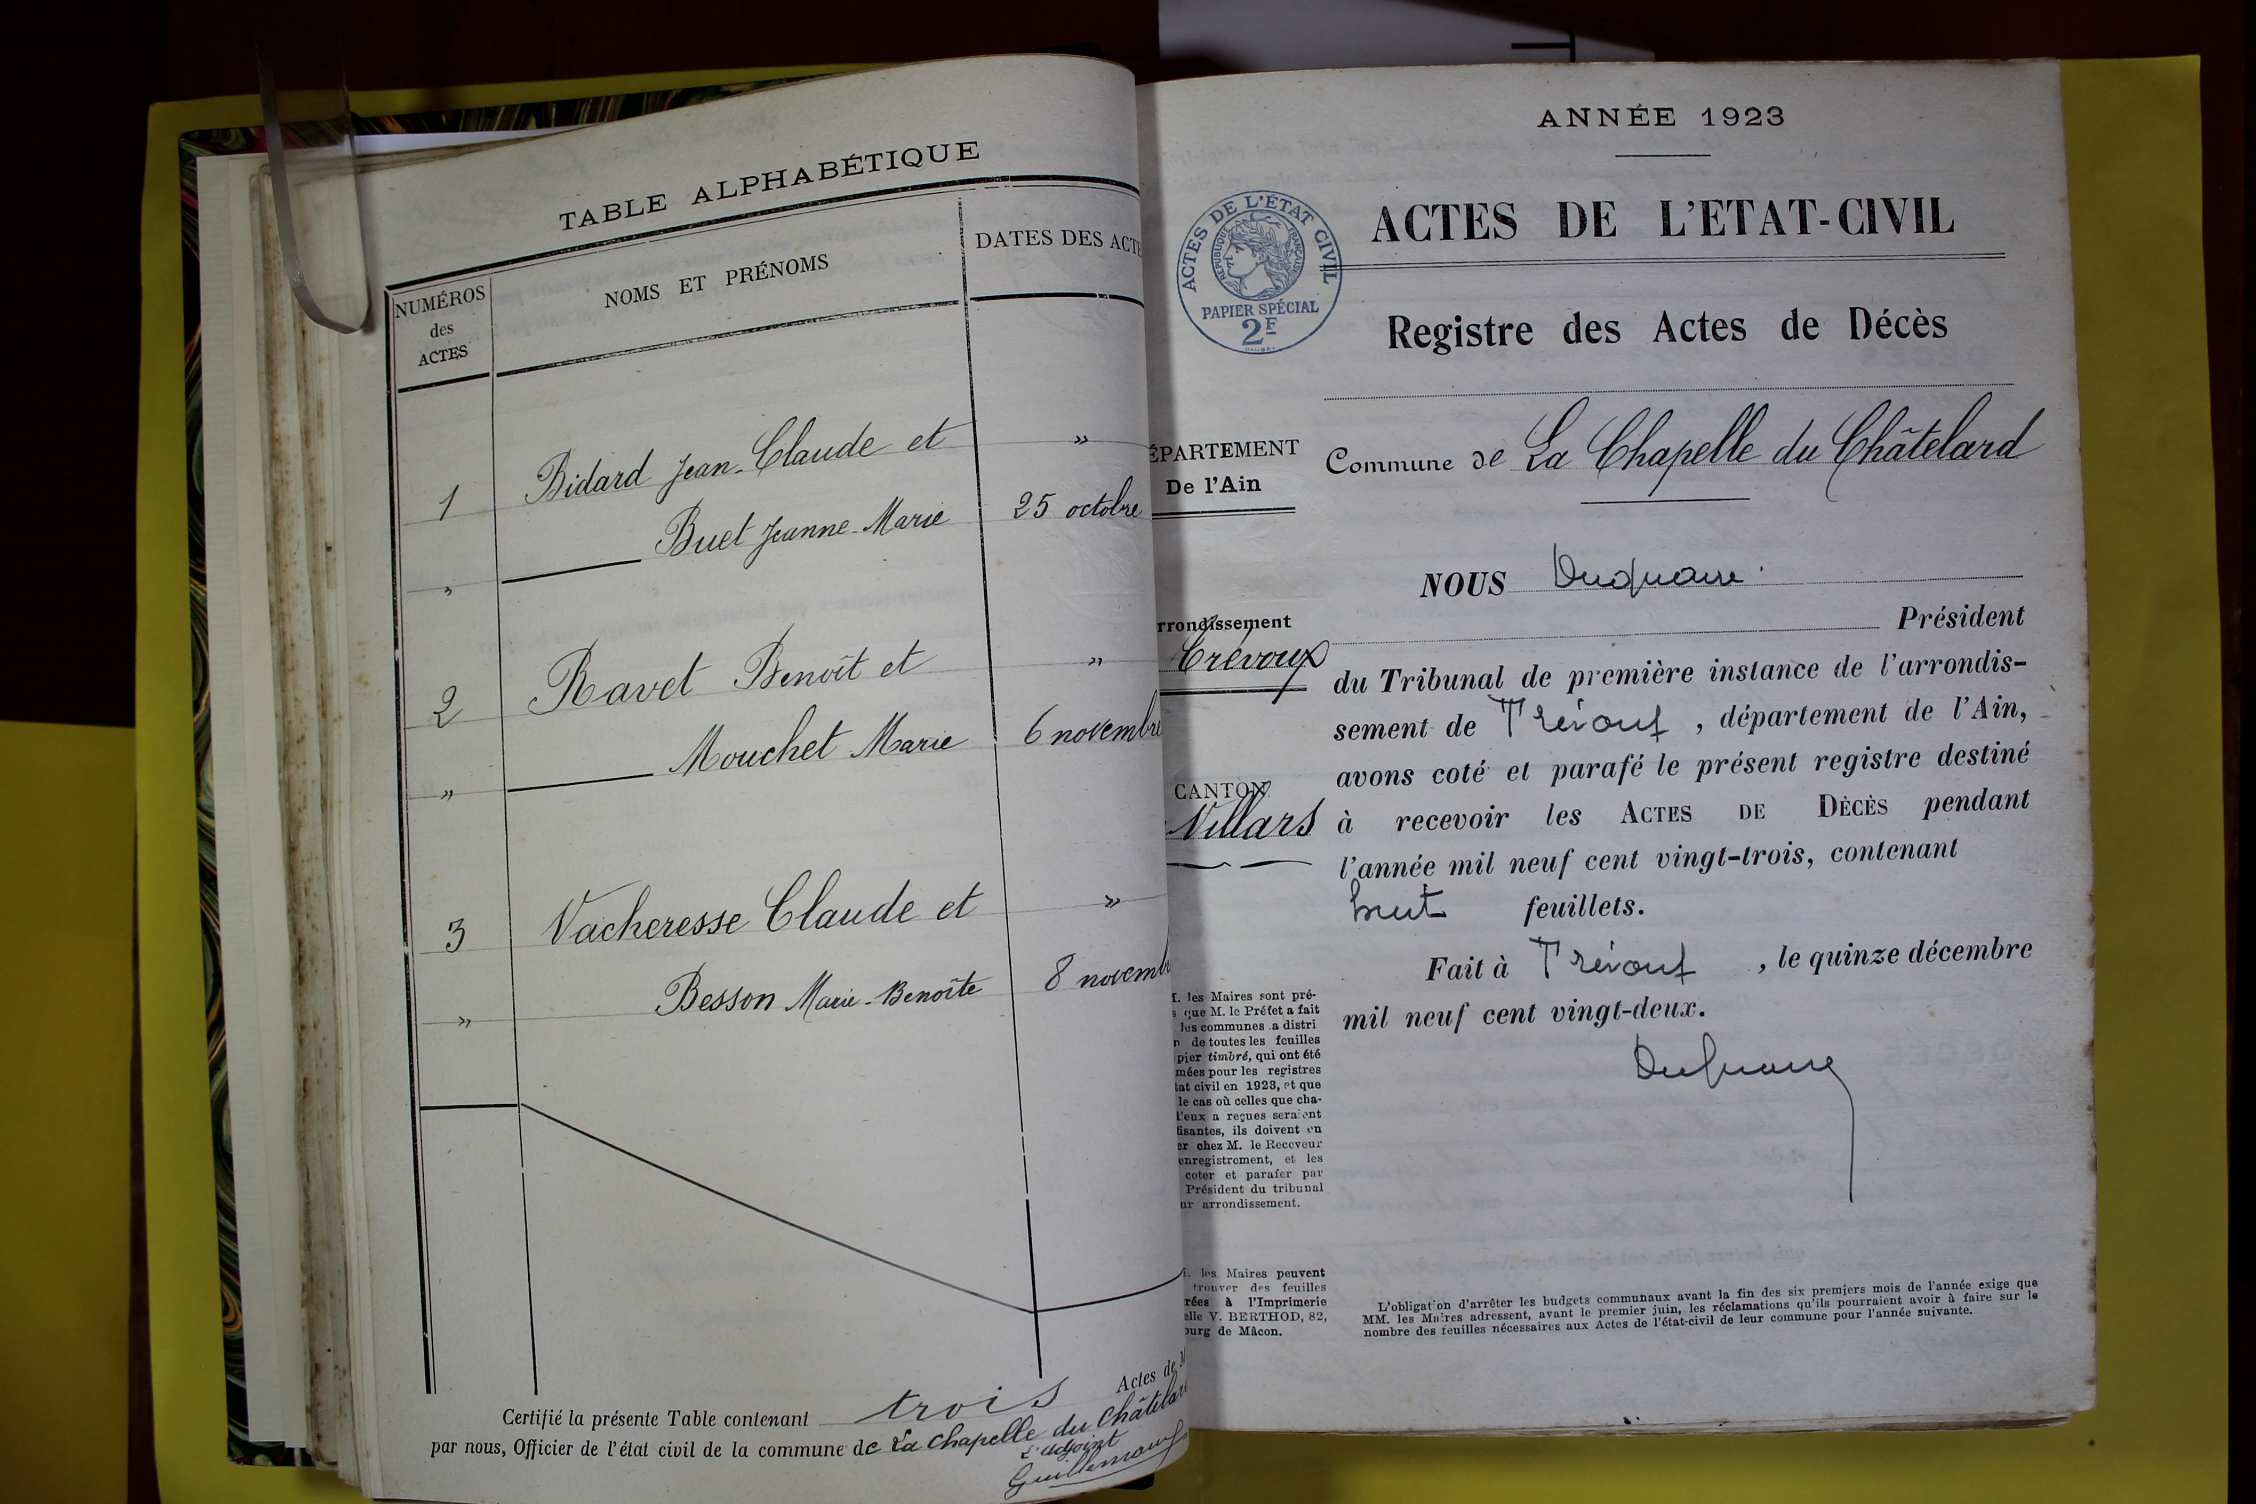 TABLE ALPHABÉTIQUE
NUMÉROS
des
ACTES
NOMS ET PRÉNOMS
DATES DES ACTE
1
Bidard Jean-Claude et
"
Buet Jeanne-Marie
25 octobre
"
2
Ravet Benoît et
"
Mouchet Marie
6 novembre
"
3
Vacheresse Claude et
"
Besson Marie-Benoîte
8 novemb
"
Certifié la présente Table contenant trois Actes de
par nous, Officier de l'état civil de la commune de La Chapelle du Châtelar
L'adjoint
ANNÉE 1923
ACTES DE L'ETAT-CIVIL
ACTES DE L'ÉTAT CIVIL
RÉPUBLIQUE FRANÇAISE
PAPIER SPÉCIAL
2F
Registre des Actes de Décès
ÉPARTEMENT
De l'Ain
Commune de La Chapelle du Châtelard
rrondissement
Trévoux
CANTON
Villars
NOUS
Président
du Tribunal de première instance de l'arrondis-
sement de Trévoux, département de l'Ain,
avons coté et parafé le présent registre destiné
à recevoir les ACTES DE DÉCÈS pendant
l'année mil neuf cent vingt-trois, contenant
huit feuillets.
Fait à Trévoux, le quinze décembre
mil neuf cent vingt-deux.
M. les Maires sont pré-
s que M. le Préfet a fait
les communes a distri
n de toutes les feuilles
pier timbré, qui ont été
mées pour les registres
tat civil en 1923, et que
le cas où celles que cha-
l'eux a reçues seraient
fisantes, ils doivent en
er chez M. le Receveur
enregistrement, et les
coter et parafer par
Président du tribunal
ur arrondissement.
M. les Maires peuvent
trouver des feuilles
rées à l'Imprimerie
elle V. BERTHOD, 82,
ourg de Mâcon.
L'obligation d'arrêter les budgets communaux avant la fin des six premiers mois de l'année exige que
MM. les Maires adressent, avant le premier juin, les réclamations qu'ils pourraient avoir à faire sur le
nombre des feuilles nécessaires aux Actes de l'état-civil de leur commune pour l'année suivante.